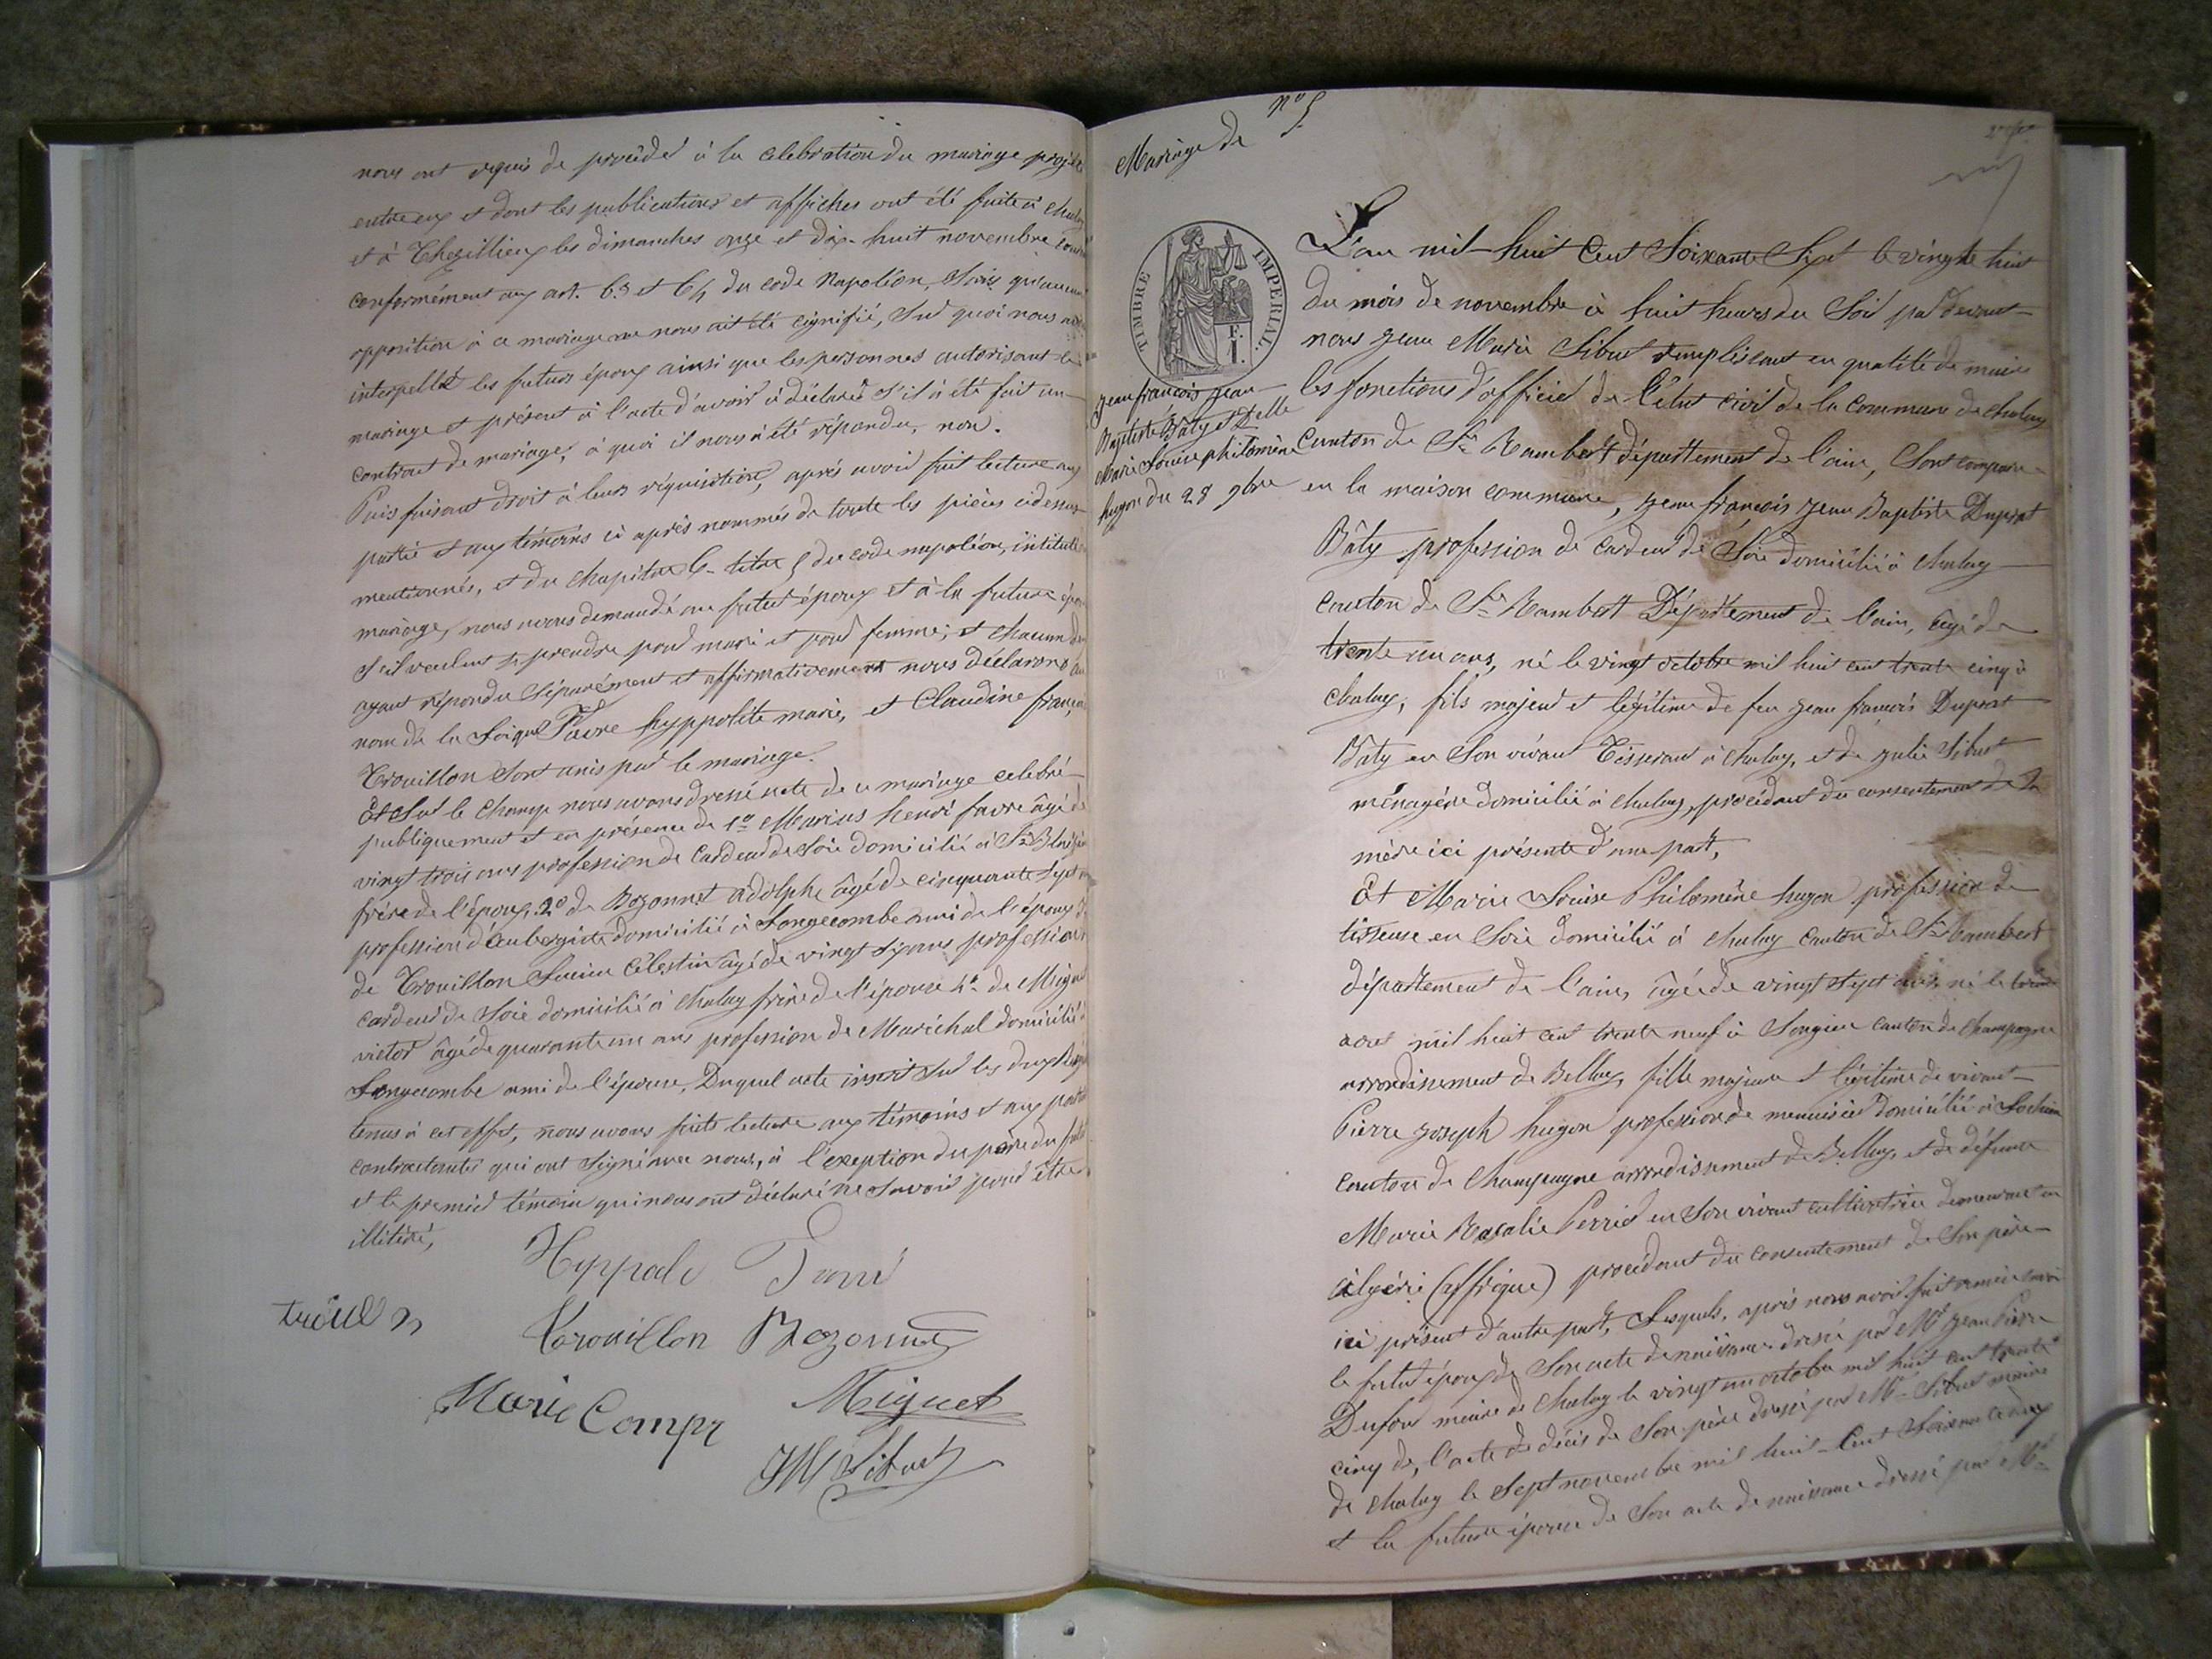 nous ont requis de procéder à la célébration du mariage projeté
entre eux et dont les publications et affiches ont été faite à Chaley
et à Thezillieu les dimanches onze et dix-huit novembre
conformément aux art. 63 et 64 du code Napoléon, Sans qu'aucune
opposition à ce mariage ne nous ait été signifié, Sur quoi nous
interpellé les futurs époux ainsi que les personnes autorisant le
mariage et présent à l'acte d'avoir à déclarer s'il a été fait un
contrat de mariage, à quoi il nous a été répondu, non.
Puis faisant droit à leurs réquisition, après avoir fait lecture aux
partie et aux témoins ci après nommés de toute les pièces cidessus
mentionnés, et du chapitre 6 titre 5 du code napoléon, intitulé
mariage, nous avons demandé au futur époux et à la future
s'il veulent se prendre pour mari et pour femme; et chacun
ayant répondu séparément et affirmativement nous déclarons
nom de la Loi que Favre hyppolite marie, et Claudine
Trouillon sont unis par le mariage.
Et Sur le champ nous avons dressé acte de ce mariage celebré
publiquement et en présence de 1º Marius henri favre âgé de
vingt trois ans profession de Cardeur de Soie domicilié à St
frère de l'époux, 2º de Bozonnet adolphe âgé de cinquante sept
profession d'aubergiste domicilié à Longecombe ami de l'époux
de Trouillon Lucien Célestin âgé de vingt six ans profession
cardeur de Soie domicilié à Chaley frère de l'épouse 4º de Miguet
victor âgé de quarante un ans profession de Maréchal domicilié
Longecombe ami de l'épouse, Duquel acte inscrit sur les deux
tenus à cet effet, nous avons faite lecture aux témoins et aux
contractantes qui ont signé avec nous, à l'exeption du père du
et le premier témoin qui nous ont déclaré ne Savoir pour être
illitéré,
Hyppole Favre
Trouillon Bozonnet
Marie Miguet
JM Sibut
Nº 5
Mariage de
TIMBRE IMPERIAL.
F.
1.
jean françois jean
Baptiste Bâty et Delle
Marie Louise philomène
hugon du 28 9bre
L'an mil huit Cent Soixante Sept le vingt huit
du mois de novembre à huit heures du Soir par devant
nous jean Marie Sibut remplissant en qualité de maire
les fonctions d'officier de l'état civil de la Commune de Chaley
Canton de St Rambert département de l'ain, Sont
en la maison commune, jean françois jean Baptiste Duprat
Bâty profession de cardeur de Soie domicilié à Chaley
canton de St Rambert Département de l'ain, âgé de
trente un ans, né le vingt octobre mil huit cent trente cinq à
Chaley, fils majeur et légitime de feu jean françois Duprat
Bâty en Son vivant Tisserant à Chaley, et de julie Sibut
ménagère domicilié à Chaley, procédant du consentement de Sa
mère ici présente d'une part,
Et Marie Louise Philomène hugon profession de
tisseuse en Soie domicilié à Chaley Canton de St Rambert
département de l'ain, âgée de vingt sept ans, né le
aout mil huit cent trente neuf à Songieu canton de Champagne
arrondissement de Belley, fille majeure et légitime de vivant
Pierre joseph hugon profession de menuisier domicilié à
canton de Champagne arrondissement de Belley, et de défunte
Marie Perrier en son vivant cultivatrice demeurant en
algérie (affrique) procédant du consentement de Son père
ici présent d'autre part, Lesquels, après nous avoir
le futur époux de Son acte de naissance dressé par Mr jean Pierre
Dufour maire de Chaley le vingt un octobre mil huit cent trente
cinq de, l'acte de décès de Son père dressé par Mr Sibut maire
de Chaley le Sept novembre mil huit Cent Soixante
et la future épouse de Son acte de naissance dressé par Mr